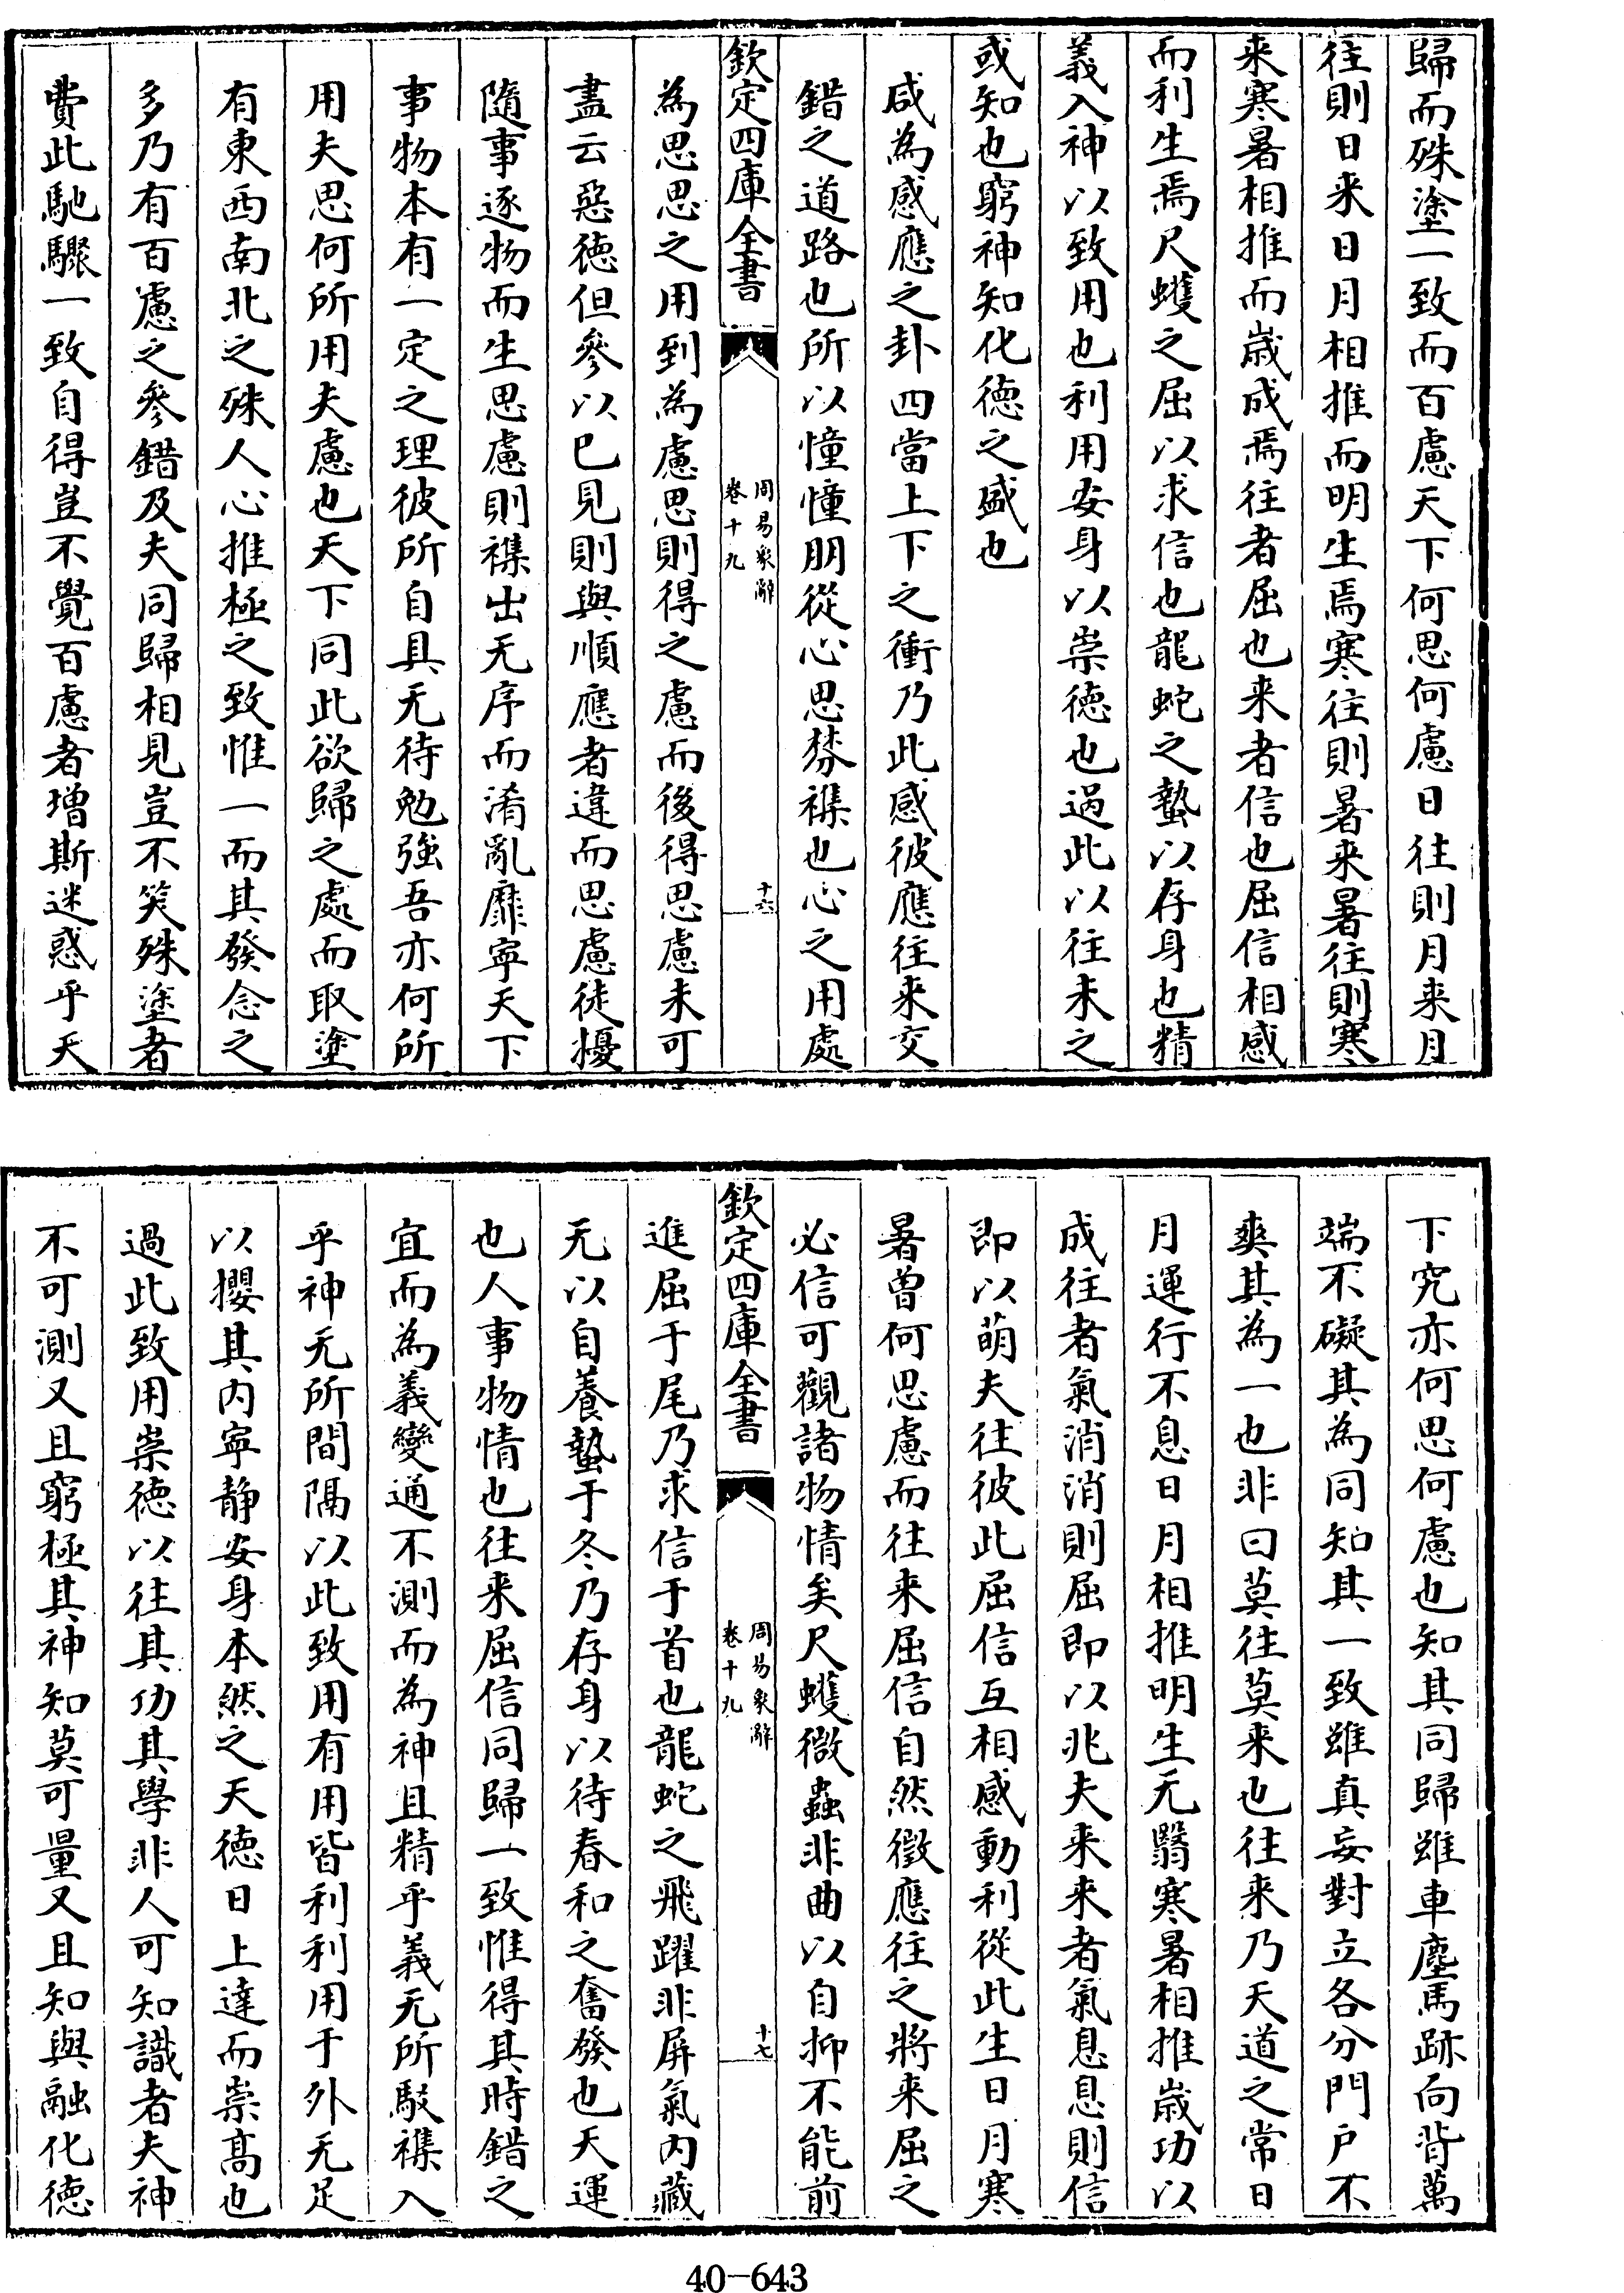 歸而殊塗一致而百慮天下何思何慮日往則月来月
往則日来日月相推而明生焉寒往則暑来暑往則寒
来寒暑相推而歳成焉往者屈也来者信也屈信相感
而利生焉尺蠖之屈以求信也龍蛇之蟄以存身也精
義入神以致用也利用安身以崇徳也過此以往未之
或知也窮神知化徳之盛也
咸為感應之卦四當上下之衝乃此感彼應往来交
錯之道路也所以憧憧朋從心思棼襍也心之用處
欽定四庫全書
周易象辭
卷十九
十六
為思思之用到為慮思則得之慮而後得思慮未可
盡云惡徳但參以已見則與順應者違而思慮徒擾
隨事逐物而生思慮則襍出无序而淆亂靡寧天下
事物本有一定之理彼所自具无待勉強吾亦何所
用夫思何所用夫慮也天下同此欲歸之處而取塗
有東西南北之殊人心推極之致惟一而其發念之
多乃有百慮之參錯及夫同歸相見豈不笑殊塗者
費此馳驟一致自得豈不覺百慮者増斯迷惑乎天
下究亦何思何慮也知其同歸雖車塵馬跡向背萬
端不礙其為同知其一致雖真妄對立各分門户不
爽其為一也非曰莫往莫来也往来乃天道之常日
月運行不息日月相推明生无翳寒暑相推歳功以
成往者氣消消則屈即以兆夫来来者氣息息則信
即以萌夫往彼此屈信互相感動利從此生日月寒
暑曾何思慮而往来屈信自然徴應往之將来屈之
必信可觀諸物情矣尺蠖微蟲非曲以自抑不能前
欽定四庫全書
周易象辭
卷十九
十七
進屈于尾乃求信于首也龍蛇之飛躍非屏氣内藏
无以自養蟄于冬乃存身以待春和之奮發也天運
也人事物情也往来屈信同歸一致惟得其時錯之
宜而為義變通不測而為神且精乎義无所駁襍入
乎神无所間隔以此致用有用皆利利用于外无足
以攖其内寧静安身本然之天徳日上達而崇髙也
過此致用崇徳以往其功其學非人可知識者夫神
不可測又且窮極其神知莫可量又且知與融化徳
40-643